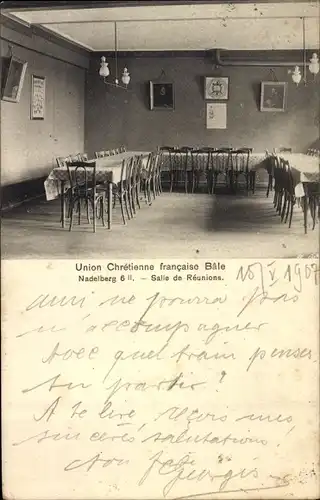 Union Chrétienne française Bâle
Nadelberg 6 II. - Salle de Réunions.
15/V 1907
ami ne pourra pas
m'accompagner
Avec quel train penses
tu partir?
A te lire, reçois mes
sincères salutations!
Ton
Georges